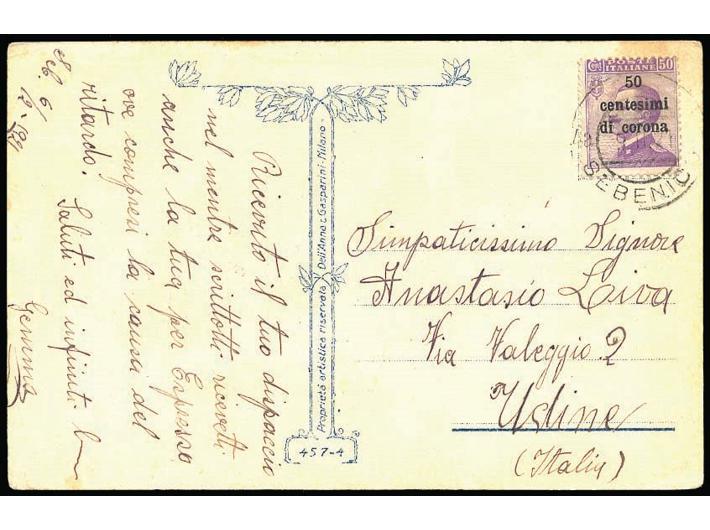 Ricevuto il tuo dispaccio
nel mentre scrittotti ricevetti
anche la tua per Espresso
ove compresi la causa del
ritardo. Saluti ed infiniti
Gemma
6
Proprietà artistica riservata Dell'Anna e Gasperini-Milano.
457-4
ITALIANE 50
50
centesimi
di corona
SEBENIC
Simpaticissimo Signore
Anastasio Liva
Via Valeggio 2
Udine
(Italia)